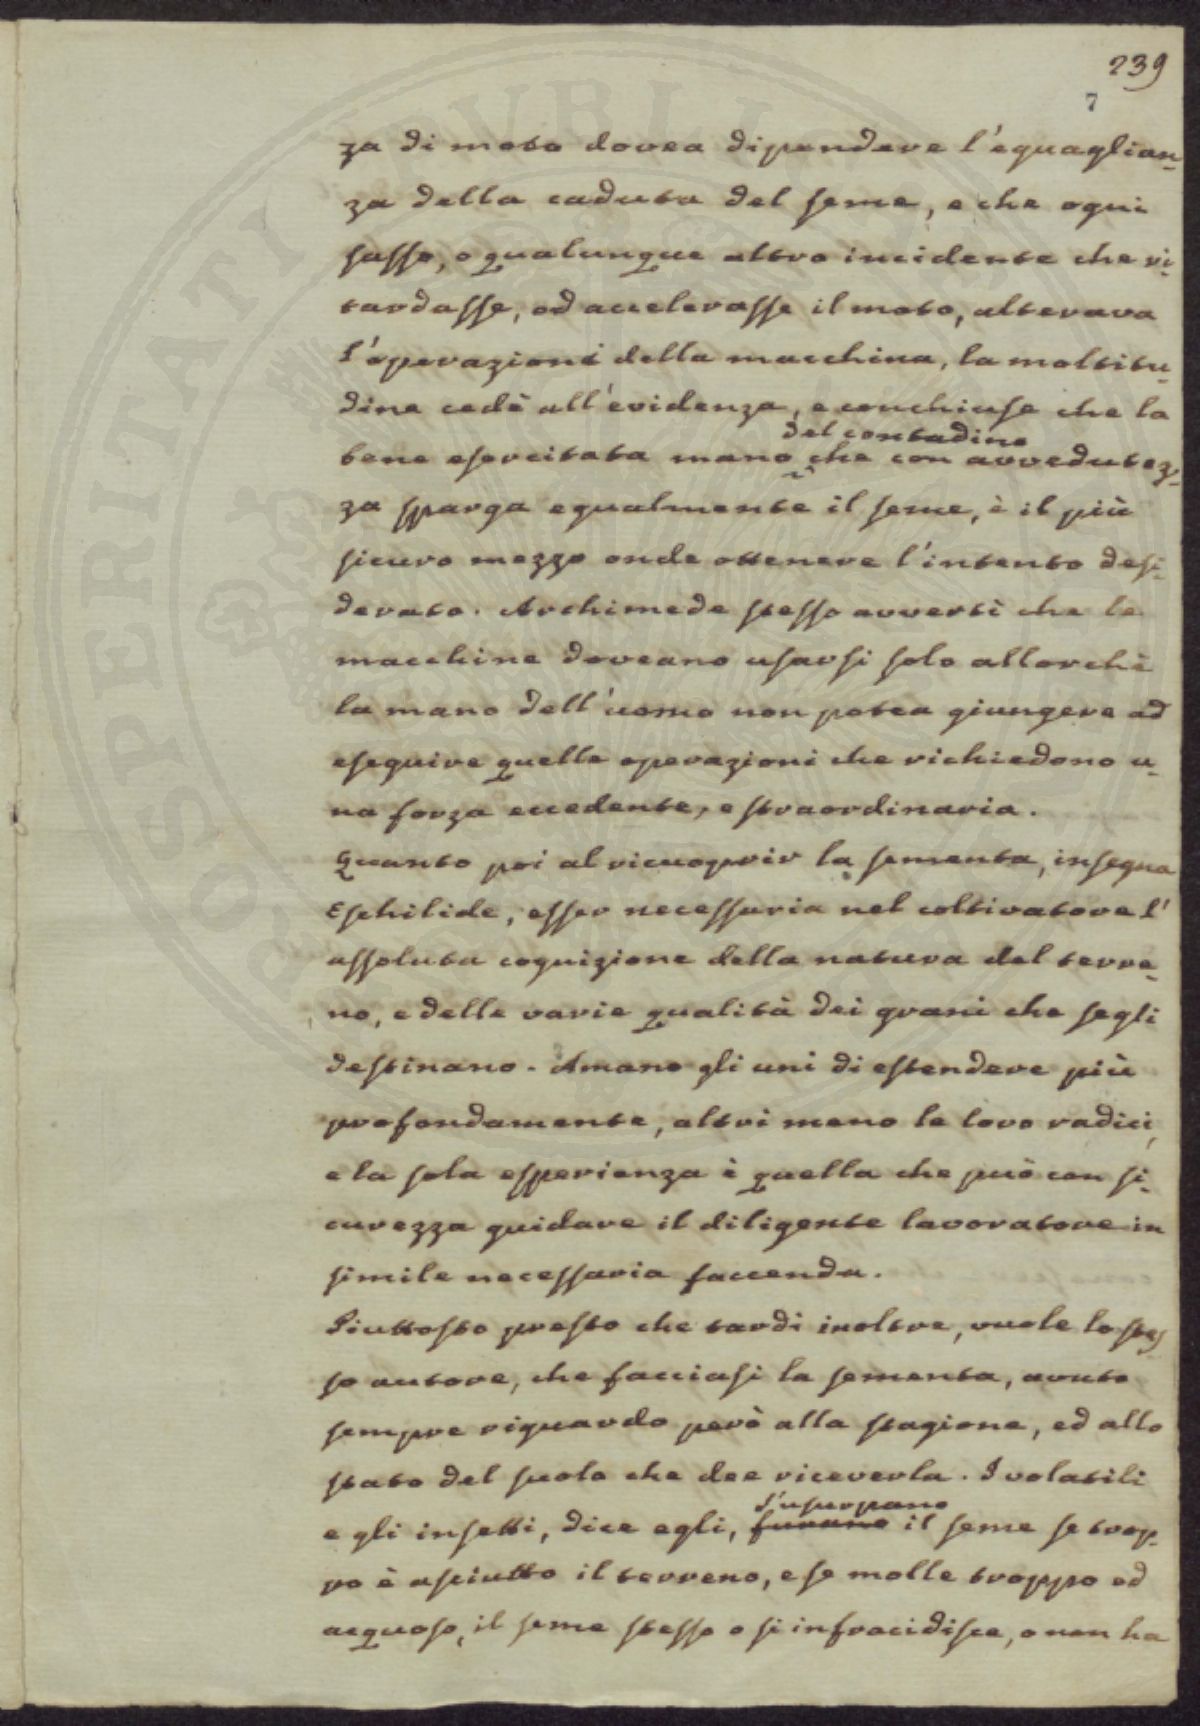 239
7
za di moto dovea dipendere l'eguaglian-
za della caduta del seme, e che ogni
sasso, o qualunque altro incidente che ri-
tardasse, od accelerasse il moto, alterava
l'operazioni della macchina, la moltitu-
dine cedè all'evidenza, e conchiuse che la
del contadino
bene esercitata mano che con avvedutez-
za sparga egualmente il seme, è il più
sicuro mezzo onde ottenere l'intento desi-
derato. Archimede stesso avvertì che le
macchine doveano usarsi solo allorchè
la mano dell'uomo non potea giungere ad
eseguire quelle operazioni che richiedono u-
na forza eccedente, e straordinaria.
Quanto poi al ricuoprir la sementa, insegna
Eschilide, esser necessaria nel coltivatore l'
assoluta cognizione della natura del terre-
no, e delle varie qualità dei grani che segli
destinano. Amano gli uni di estendere più
profondamente, altri meno le loro radici,
e la sola esperienza è quella che può con si-
curezza guidare il diligente lavoratore in
simile necessaria faccenda.
Piuttosto presto che tardi inoltre, vuole lo stes-
so autore, che facciasi la sementa, avuto
sempre riguardo però alla stagione, ed allo
stato del suolo che dee riceverla. I volatili
s'usurpano
e gli insetti, dice egli, furano il seme se trop-
po è asciutto il terreno, e se molle troppo ed
acquoso, il seme stesso o si infracidisce, o non ha
PROSPERITATI PVBLICAE